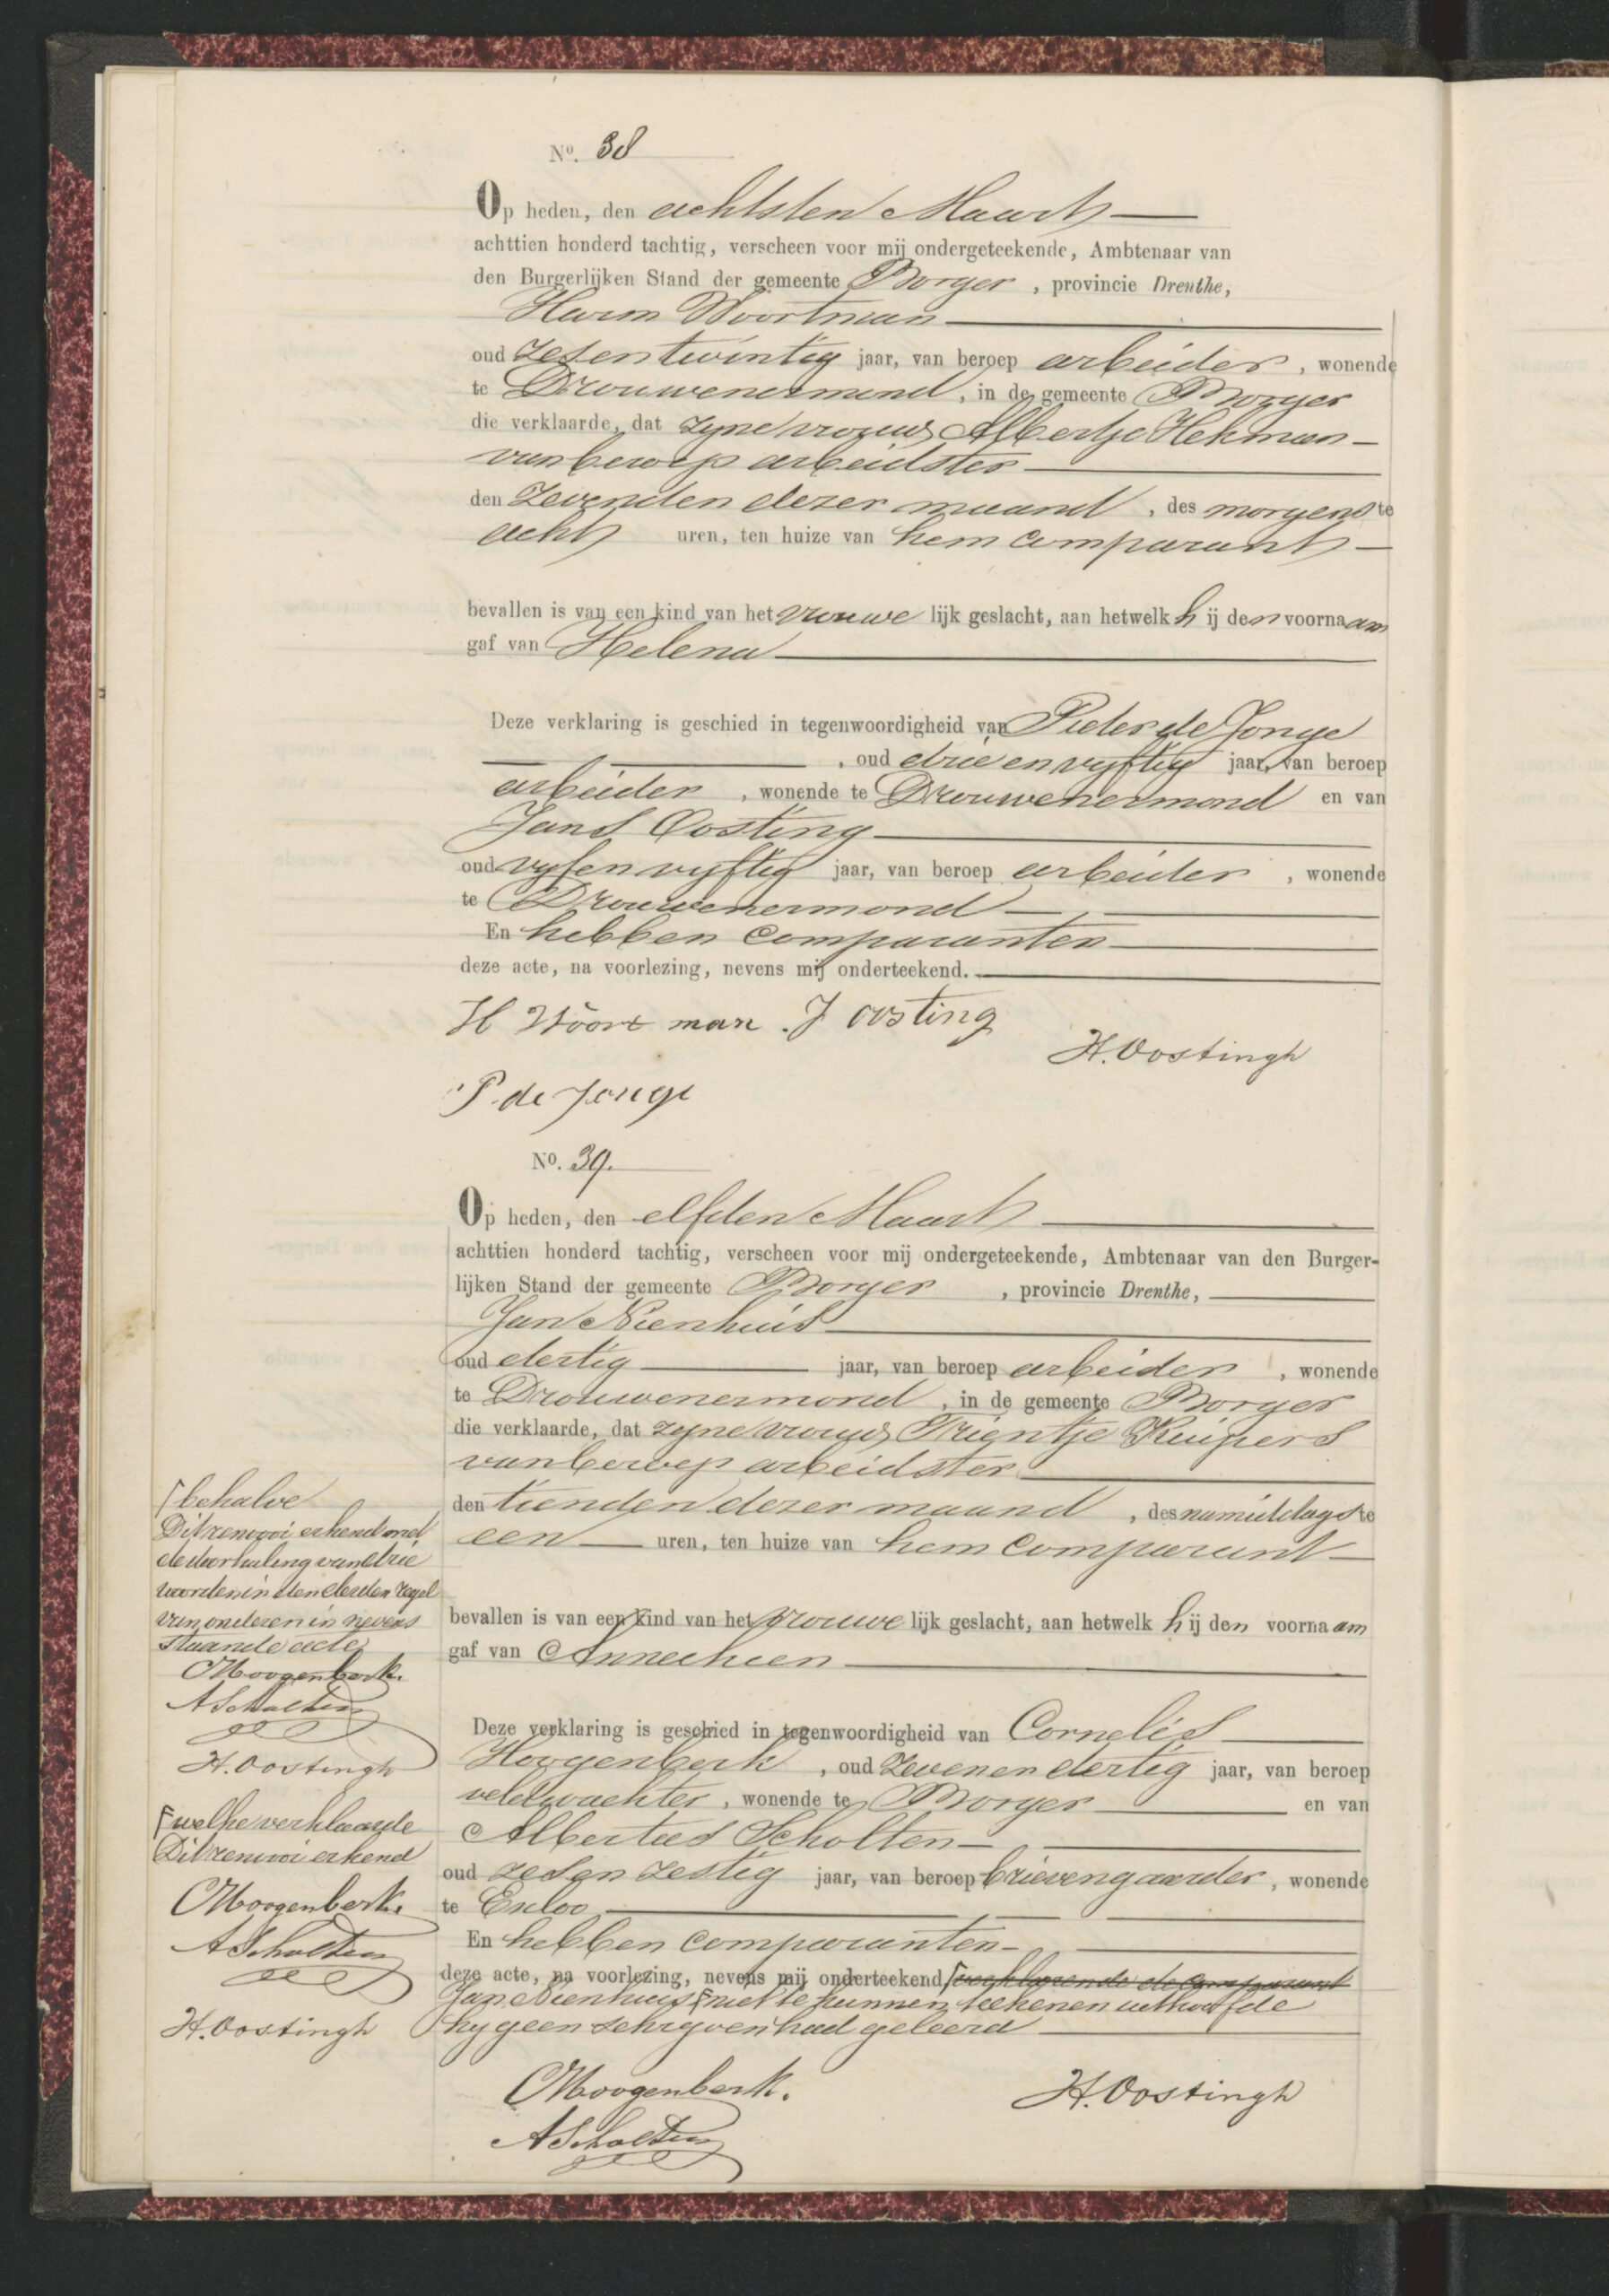 No. 38
Op heden, den achtsten Maart
achttien honderd tachtig, verscheen voor mij ondergeteekende, Ambtenaar van
den Burgerlijken Stand der gemeente Borger, provincie Drenthe,
Harm Woortman
oud zesentwintig jaar, van beroep arbeider, wonende
te Drouwenermond, in de gemeente Borger
die verklaarde, dat zyne vrouw Albertje Hekman
van beroep arbeidster
den zevenden dezer maand, des morgens te
acht uren, ten huize van hem comparant
bevallen is van een kind van het vrouwelijk geslacht, aan hetwelk hij den voornaam
gaf van Helena
Deze verklaring is geschied in tegenwoordigheid van Pieter de Jonge
, oud drie en vyftig jaar, van beroep
arbeider, wonende te Drouwenermond en van
Jans Oosting
oud vyfenvyftig jaar, van beroep arbeider, wonende
te Drouwenermond
En hebben comparanten
deze acte, na voorlezing, nevens mij onderteekend.
H Woortman J Oosting
H. Oostingh
P de Jonge
No. 39.
Op heden, den elfden Maart
achttien honderd tachtig, verscheen voor mij ondergeteekende, Ambtenaar van den Burger-
lijken Stand der gemeente Borger, provincie Drenthe,
Jan Nienhuis
oud dertig jaar, van beroep arbeider, wonende
te Drouwenermond, in de gemeente Borger
die verklaarde, dat zyne vrouw Trientje Kuipers
van beroep arbeidster
den tienden dezer maand, des namiddags te
een uren, ten huize van hem comparant
bevallen is van een kind van het vrouwelijk geslacht, aan hetwelk hij den voornaam
gaf van Annechien
Deze verklaring is geschied in tegenwoordigheid van Cornelis
Hoogenberk, oud zevenendertig jaar, van beroep
veldwachter, wonende te Borger en van
Albertus Scholten
oud zesenzestig jaar, van beroep brievengaarder, wonende
te Exloo
En hebben comparanten
deze acte, na voorlezing, nevens mij onderteekend, verklarende de comparant
Jan Nienhuis niet te kunnen teekenen uithoofde
hy geen schryven had geleerd
CHoogenberk.
H. Oostingh
AScholten
behalve
Dit renvooi erkend met
de doorhaling van drie
woorden in den derden regel
van onderen in nevens
staande acte
CHoogenberk.
AScholten
H. Oostingh
welke verklaarde
Dit renvooi erkend
CHoogenberk.
AScholten
H. Oostingh